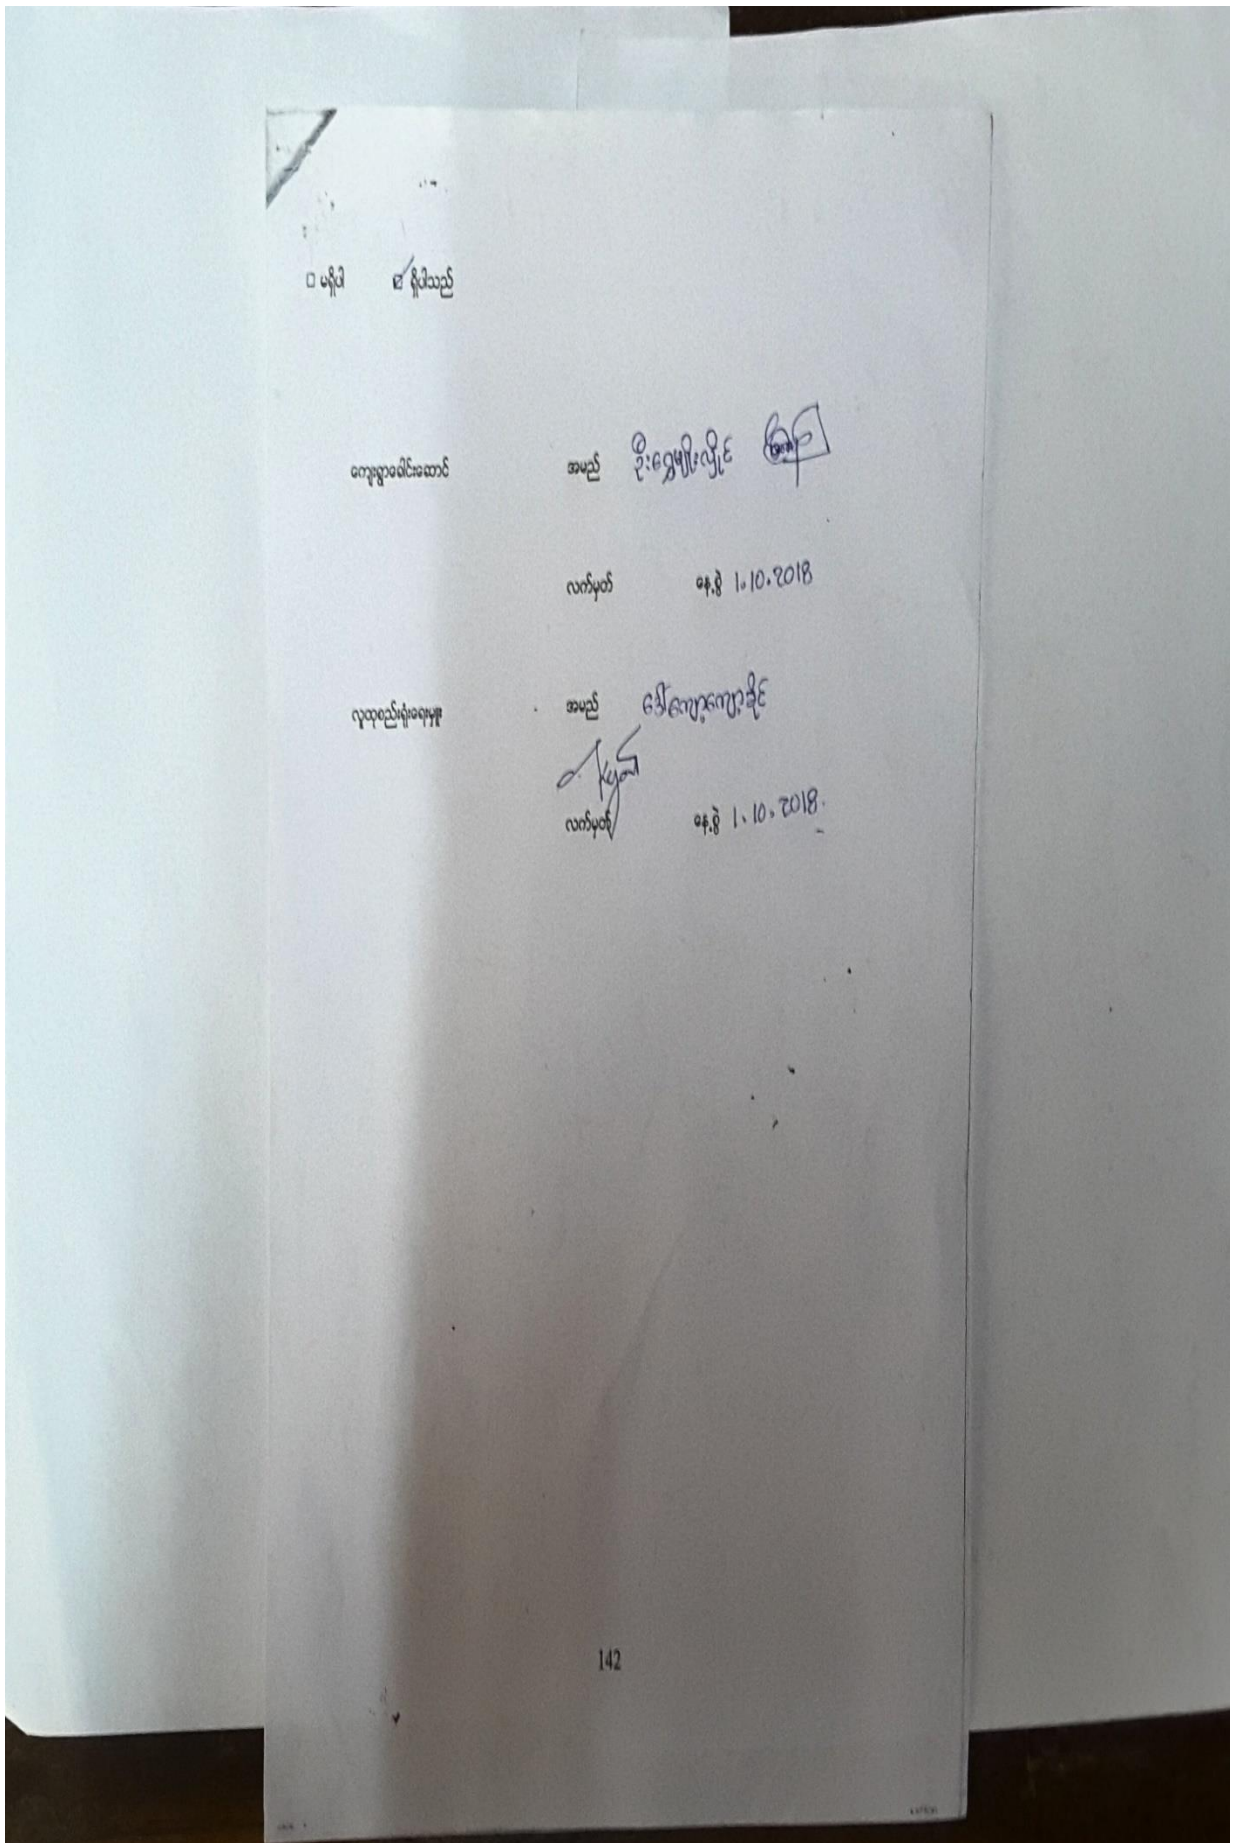 □ မရှိပါ ☑ ရှိပါသည်
ကျေးရွာခေါင်းဆောင် အမည် ဦးရွှေမျိုးလှိုင်
လက်မှတ် နေ့စွဲ 1.10.2018
လူထုစည်းရုံးရေးမှူး အမည် ဒေါ်ကျော့ကျော့ခိုင်
လက်မှတ် နေ့စွဲ 1.10.2018.
142